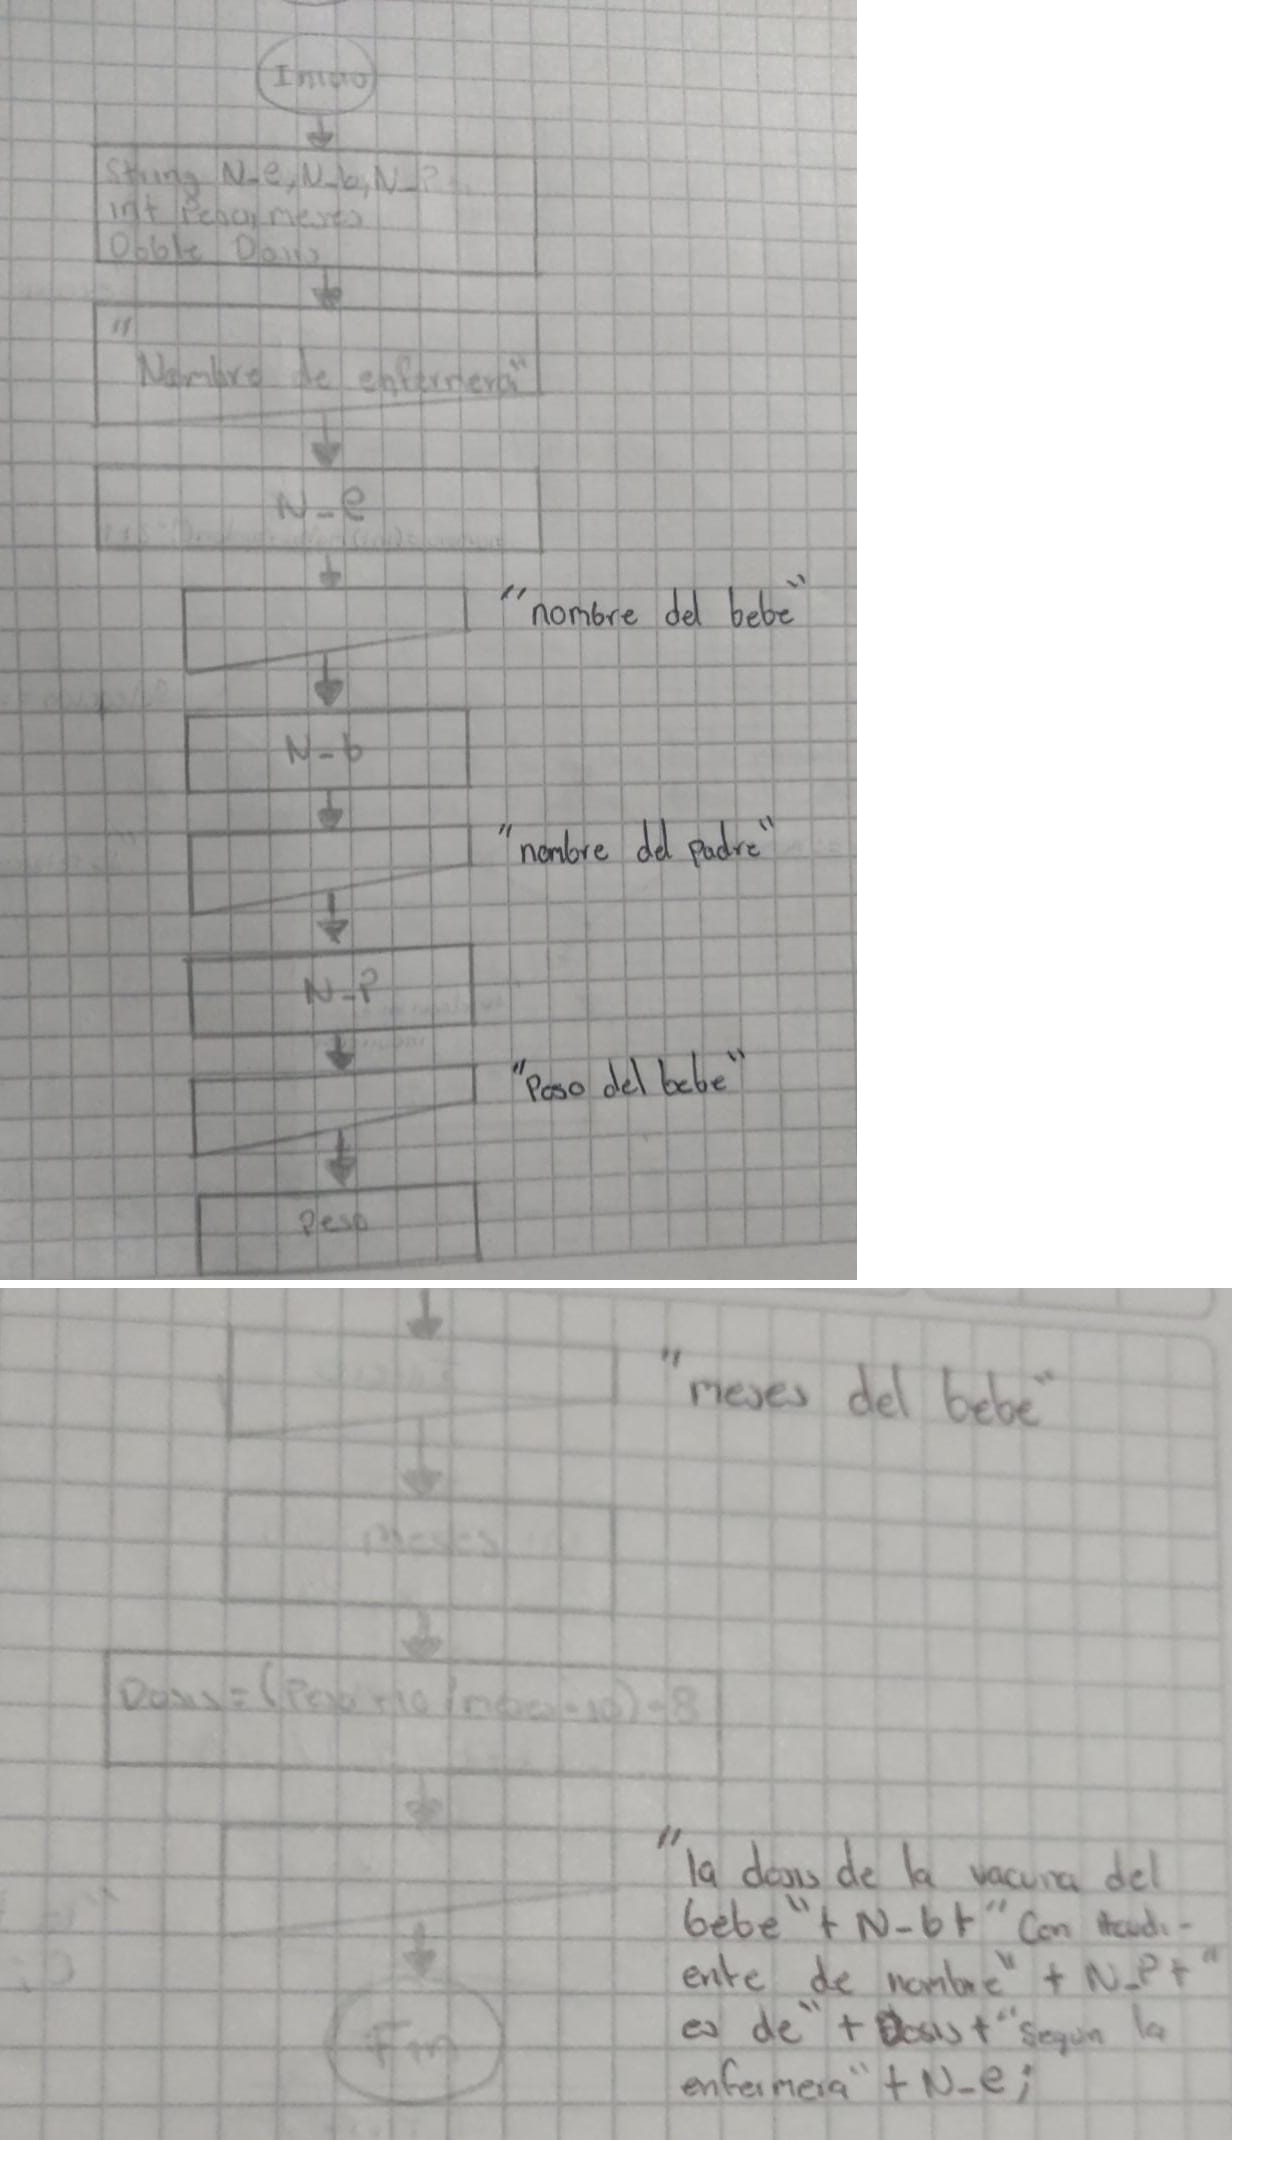 Inicio
String N-e, N-b, N-P
int Peso, meses
Doble Dosis
"
Nombre de enfermera"
N-e
"nombre del bebe"
N-b
"nombre del padre"
N-P
"Peso del bebe"
Peso
"meses del bebe"
Meses
Dosis = (Peso +10 / meses -10) - 8
"la dosis de la vacuna del
bebe" + N-b + " Con Acudi-
ente de nombre" + N-P + "
es de" + Dosis + "segun la
enfermera" + N-e ;
Fin